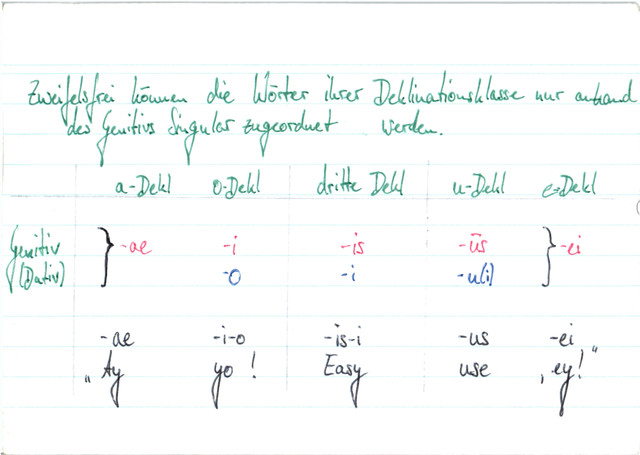 Zweifelsfrei können die Wörter ihrer Deklinationsklasse nur anhand
des Genitivs Singular zugeordnet werden.
a-Dekl o-Dekl dritte Dekl u-Dekl e-Dekl
Genitiv } -ae -i -is -ūs } -ei
(Dativ) -o -i -u(i)
-ae -i-o -is-i -us -ei
„Ay yo! Easy use , ey!“